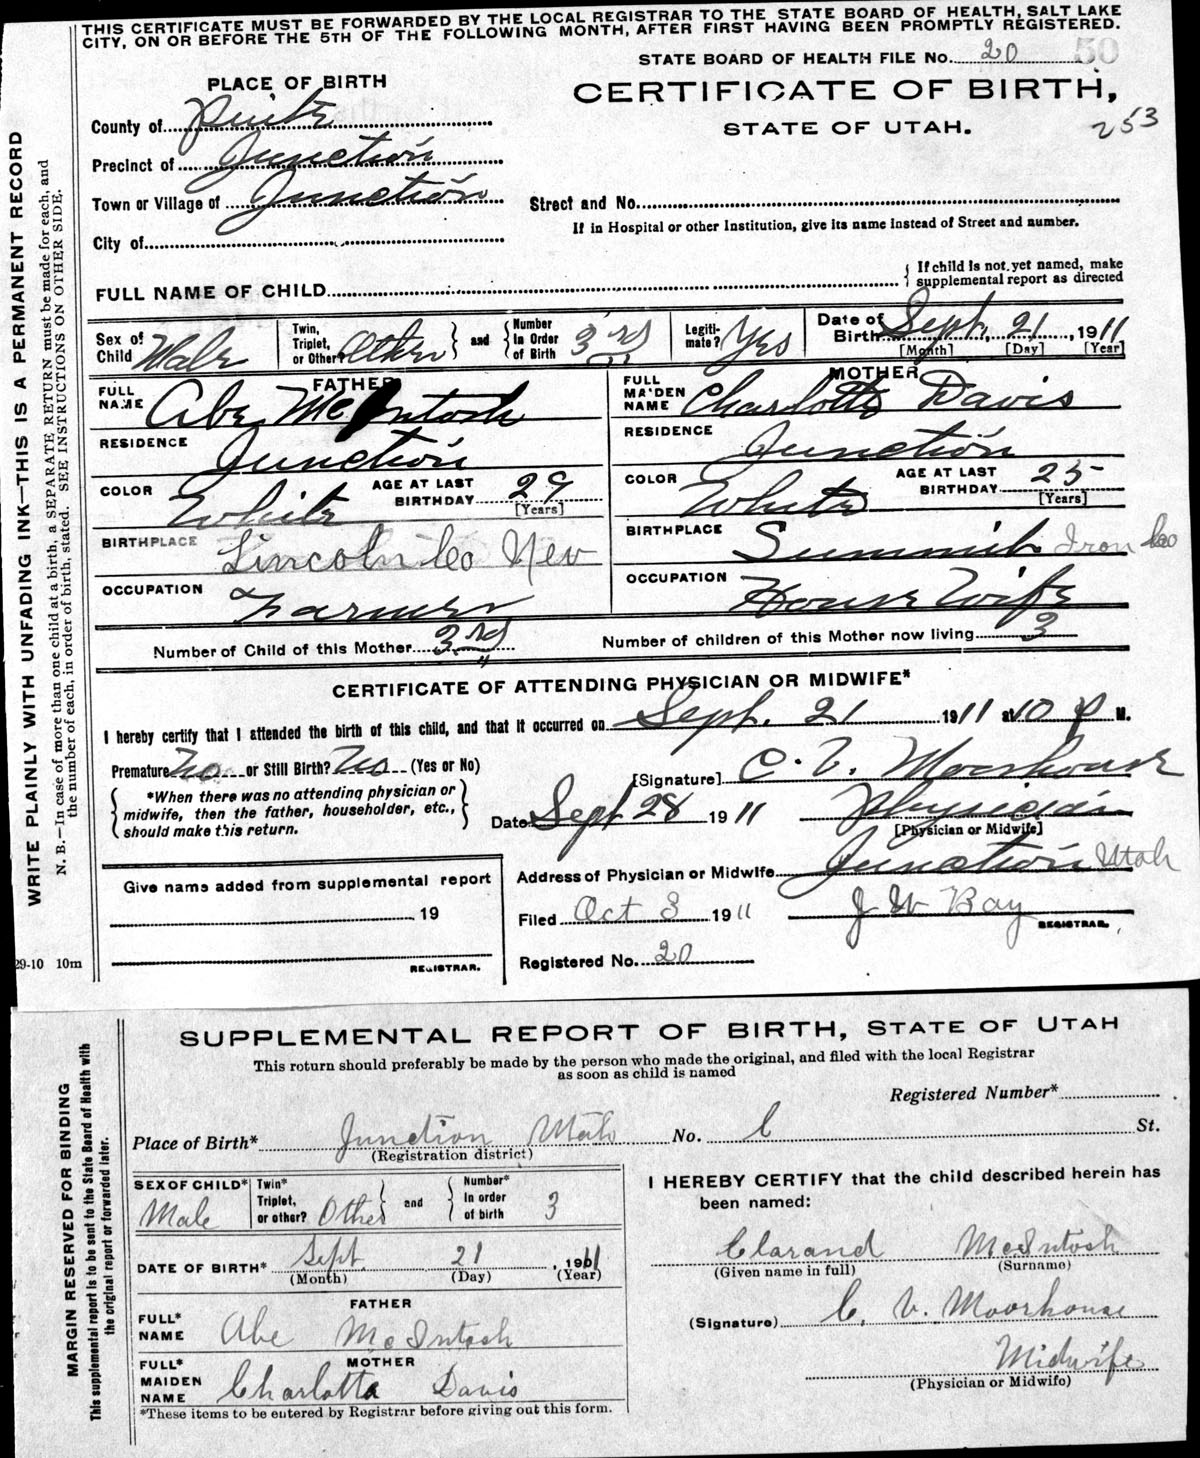 THIS CERTIFICATE MUST BE FORWARDED BY THE LOCAL REGISTRAR TO THE STATE BOARD OF HEALTH, SALT LAKE
CITY, ON OR BEFORE THE 5TH OF THE FOLLOWING MONTH, AFTER FIRST HAVING BEEN PROMPTLY REGISTERED.
STATE BOARD OF HEALTH FILE No. 20 50
PLACE OF BIRTH
CERTIFICATE OF BIRTH,
STATE OF UTAH.
253
County of Piute
Precinct of Junction
Town or Village of Junction
Street and No.
If in Hospital or other Institution, give its name instead of Street and number.
City of
FULL NAME OF CHILD
{ If child is not yet named, make
supplemental report as directed
Sex of Child Male
Twin, Triplet, or Other? Other } and { Number In Order of Birth 3rd
Legitimate? Yes
Date of Birth Sept. 21, 1911
[Month] [Day] [Year]
FATHER
FULL NAME Abe McIntosh
RESIDENCE Junction
COLOR White AGE AT LAST BIRTHDAY 29 [Years]
BIRTHPLACE Lincoln Co Nev
OCCUPATION Farmer
MOTHER
FULL MAIDEN NAME Charlotte Davis
RESIDENCE Junction
COLOR White AGE AT LAST BIRTHDAY 25 [Years]
BIRTHPLACE Summit Iron Co
OCCUPATION House Wife
Number of Child of this Mother 3rd Number of children of this Mother now living 3
CERTIFICATE OF ATTENDING PHYSICIAN OR MIDWIFE*
I hereby certify that I attended the birth of this child, and that it occurred on Sept. 21 1911 at 10 P M.
Premature No or Still Birth? No (Yes or No)
{ *When there was no attending physician or
midwife, then the father, householder, etc.,
should make this return. }
[Signature] C. V. Moorhouse
Date Sept 28 1911 Physician
[Physician or Midwife]
Address of Physician or Midwife Junction Utah
Give name added from supplemental report
19
REGISTRAR.
Filed Oct 3 1911 J W Bay
REGISTRAR.
Registered No. 20
29-10 10m
WRITE PLAINLY WITH UNFADING INK—THIS IS A PERMANENT RECORD
N. B.—In case of more than one child at a birth, a SEPARATE RETURN must be made for each, and
the number of each, in order of birth, stated. SEE INSTRUCTIONS ON OTHER SIDE.
SUPPLEMENTAL REPORT OF BIRTH, STATE OF UTAH
This return should preferably be made by the person who made the original, and filed with the local Registrar
as soon as child is named
Registered Number*
Place of Birth* Junction Utah No. St.
(Registration district)
SEX OF CHILD* Male
Twin* Triplet, or other? Other } and { Number* In order of birth 3
DATE OF BIRTH* Sept. 21, 1911
(Month) (Day) (Year)
FATHER
FULL* NAME Abe McIntosh
MOTHER
FULL* MAIDEN NAME Charlotta Davis
*These items to be entered by Registrar before giving out this form.
I HEREBY CERTIFY that the child described herein has
been named:
Clarand McIntosh
(Given name in full) (Surname)
(Signature) C. V. Moorhouse
Midwife
(Physician or Midwife)
MARGIN RESERVED FOR BINDING
This supplemental report is to be sent to the State Board of Health with
the original report or forwarded later.